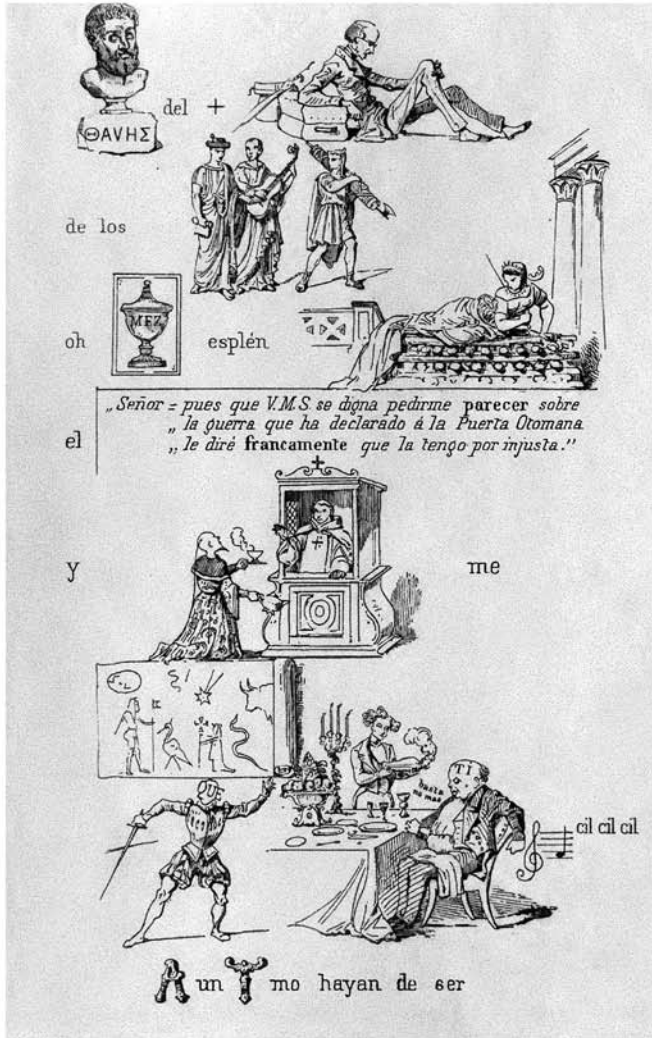 ΘAVHΣ del +
de los
oh MEZ esplén
„Señor = pues que V.M.S. se digna pedirme parecer sobre
el „ la guerra que ha declarado á la Puerta Otomana
„ le diré francamente que la tengo por injusta."
y me
TI
hasta
no mas
cil cil cil
A un T mo hayan de ser